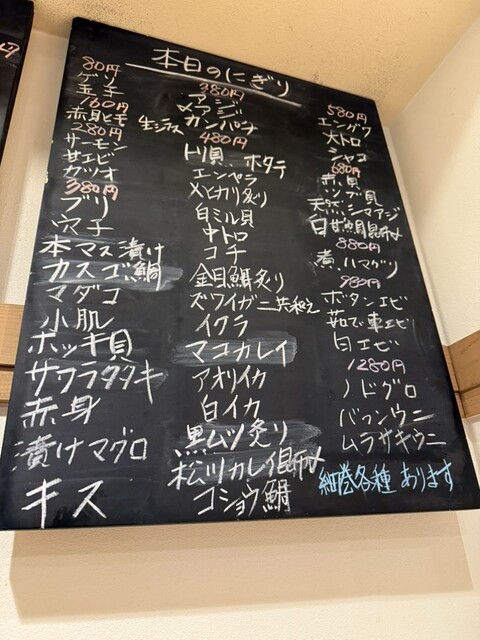 本日のにぎり
80円
ゲソ
玉子
160円
赤身ヒモ
280円
サーモン
甘エビ
カツオ
380円
ブリ
穴子
本マス漬け
カスゴ鯛
マダコ
小肌
ホッキ貝
サワラタタキ
赤身
漬けマグロ
キス
380円
アジ
〆アジ
生シラス カンパチ
480円
トリ貝、ホタテ
エンガワ
メヒカリ炙り
白ミル貝
中トロ
コチ
金目鯛炙り
ズワイガニ共和え
イクラ
マコカレイ
アオリイカ
白イカ
黒ムツ炙り
松川カレイ昆布〆
コショウ鯛
580円
エンガワ
大トロ
シャコ
680円
赤貝
ツブ貝
天然シマアジ
白甘鯛昆布〆
880円
煮ハマグリ
980円
ボタンエビ
茹で車エビ
白エビ
1280円
ノドグロ
バフンウニ
ムラサキウニ
細巻各種あります